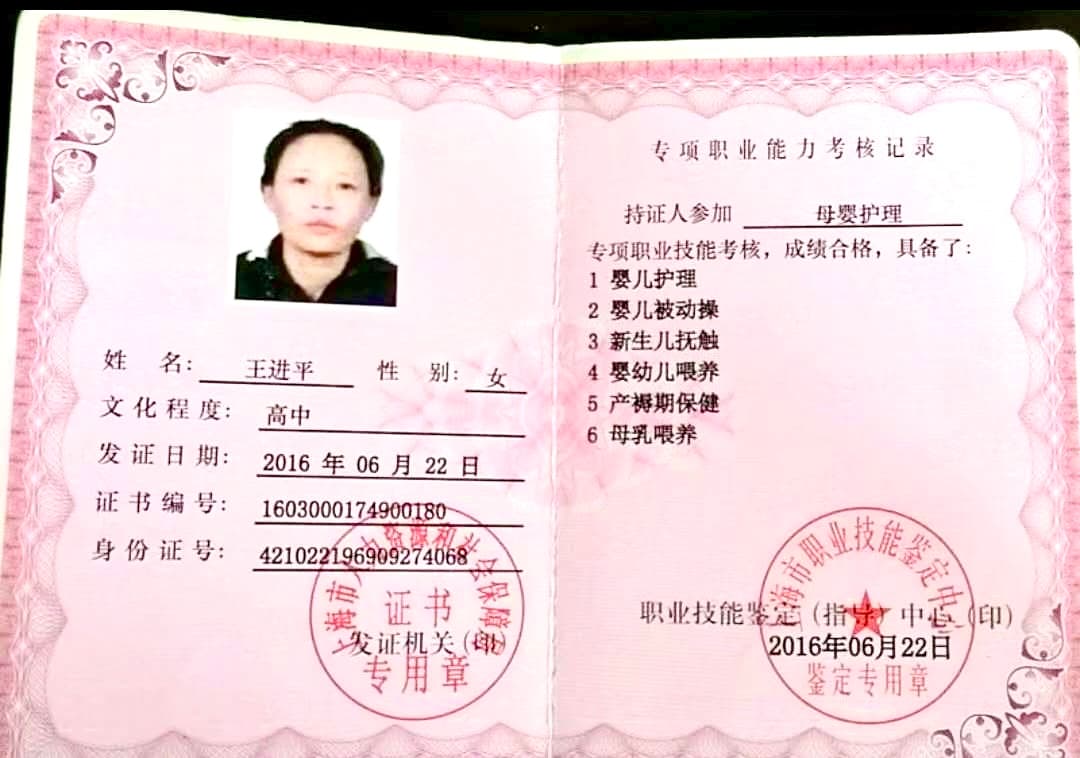 姓 名: 王进平 性 别: 女
文化程度: 高中
发证日期: 2016 年 06 月 22 日
证书编号: 1603000174900180
身份证号: 421022196909274068
上海市人力资源和社会保障局
证书
发证机关(印)
专用章
专项职业能力考核记录
持证人参加 母婴护理
专项职业技能考核，成绩合格，具备了:
1 婴儿护理
2 婴儿被动操
3 新生儿抚触
4 婴幼儿喂养
5 产褥期保健
6 母乳喂养
上海市职业技能鉴定中心
职业技能鉴定（指导）中心（印）
2016年06月22日
鉴定专用章